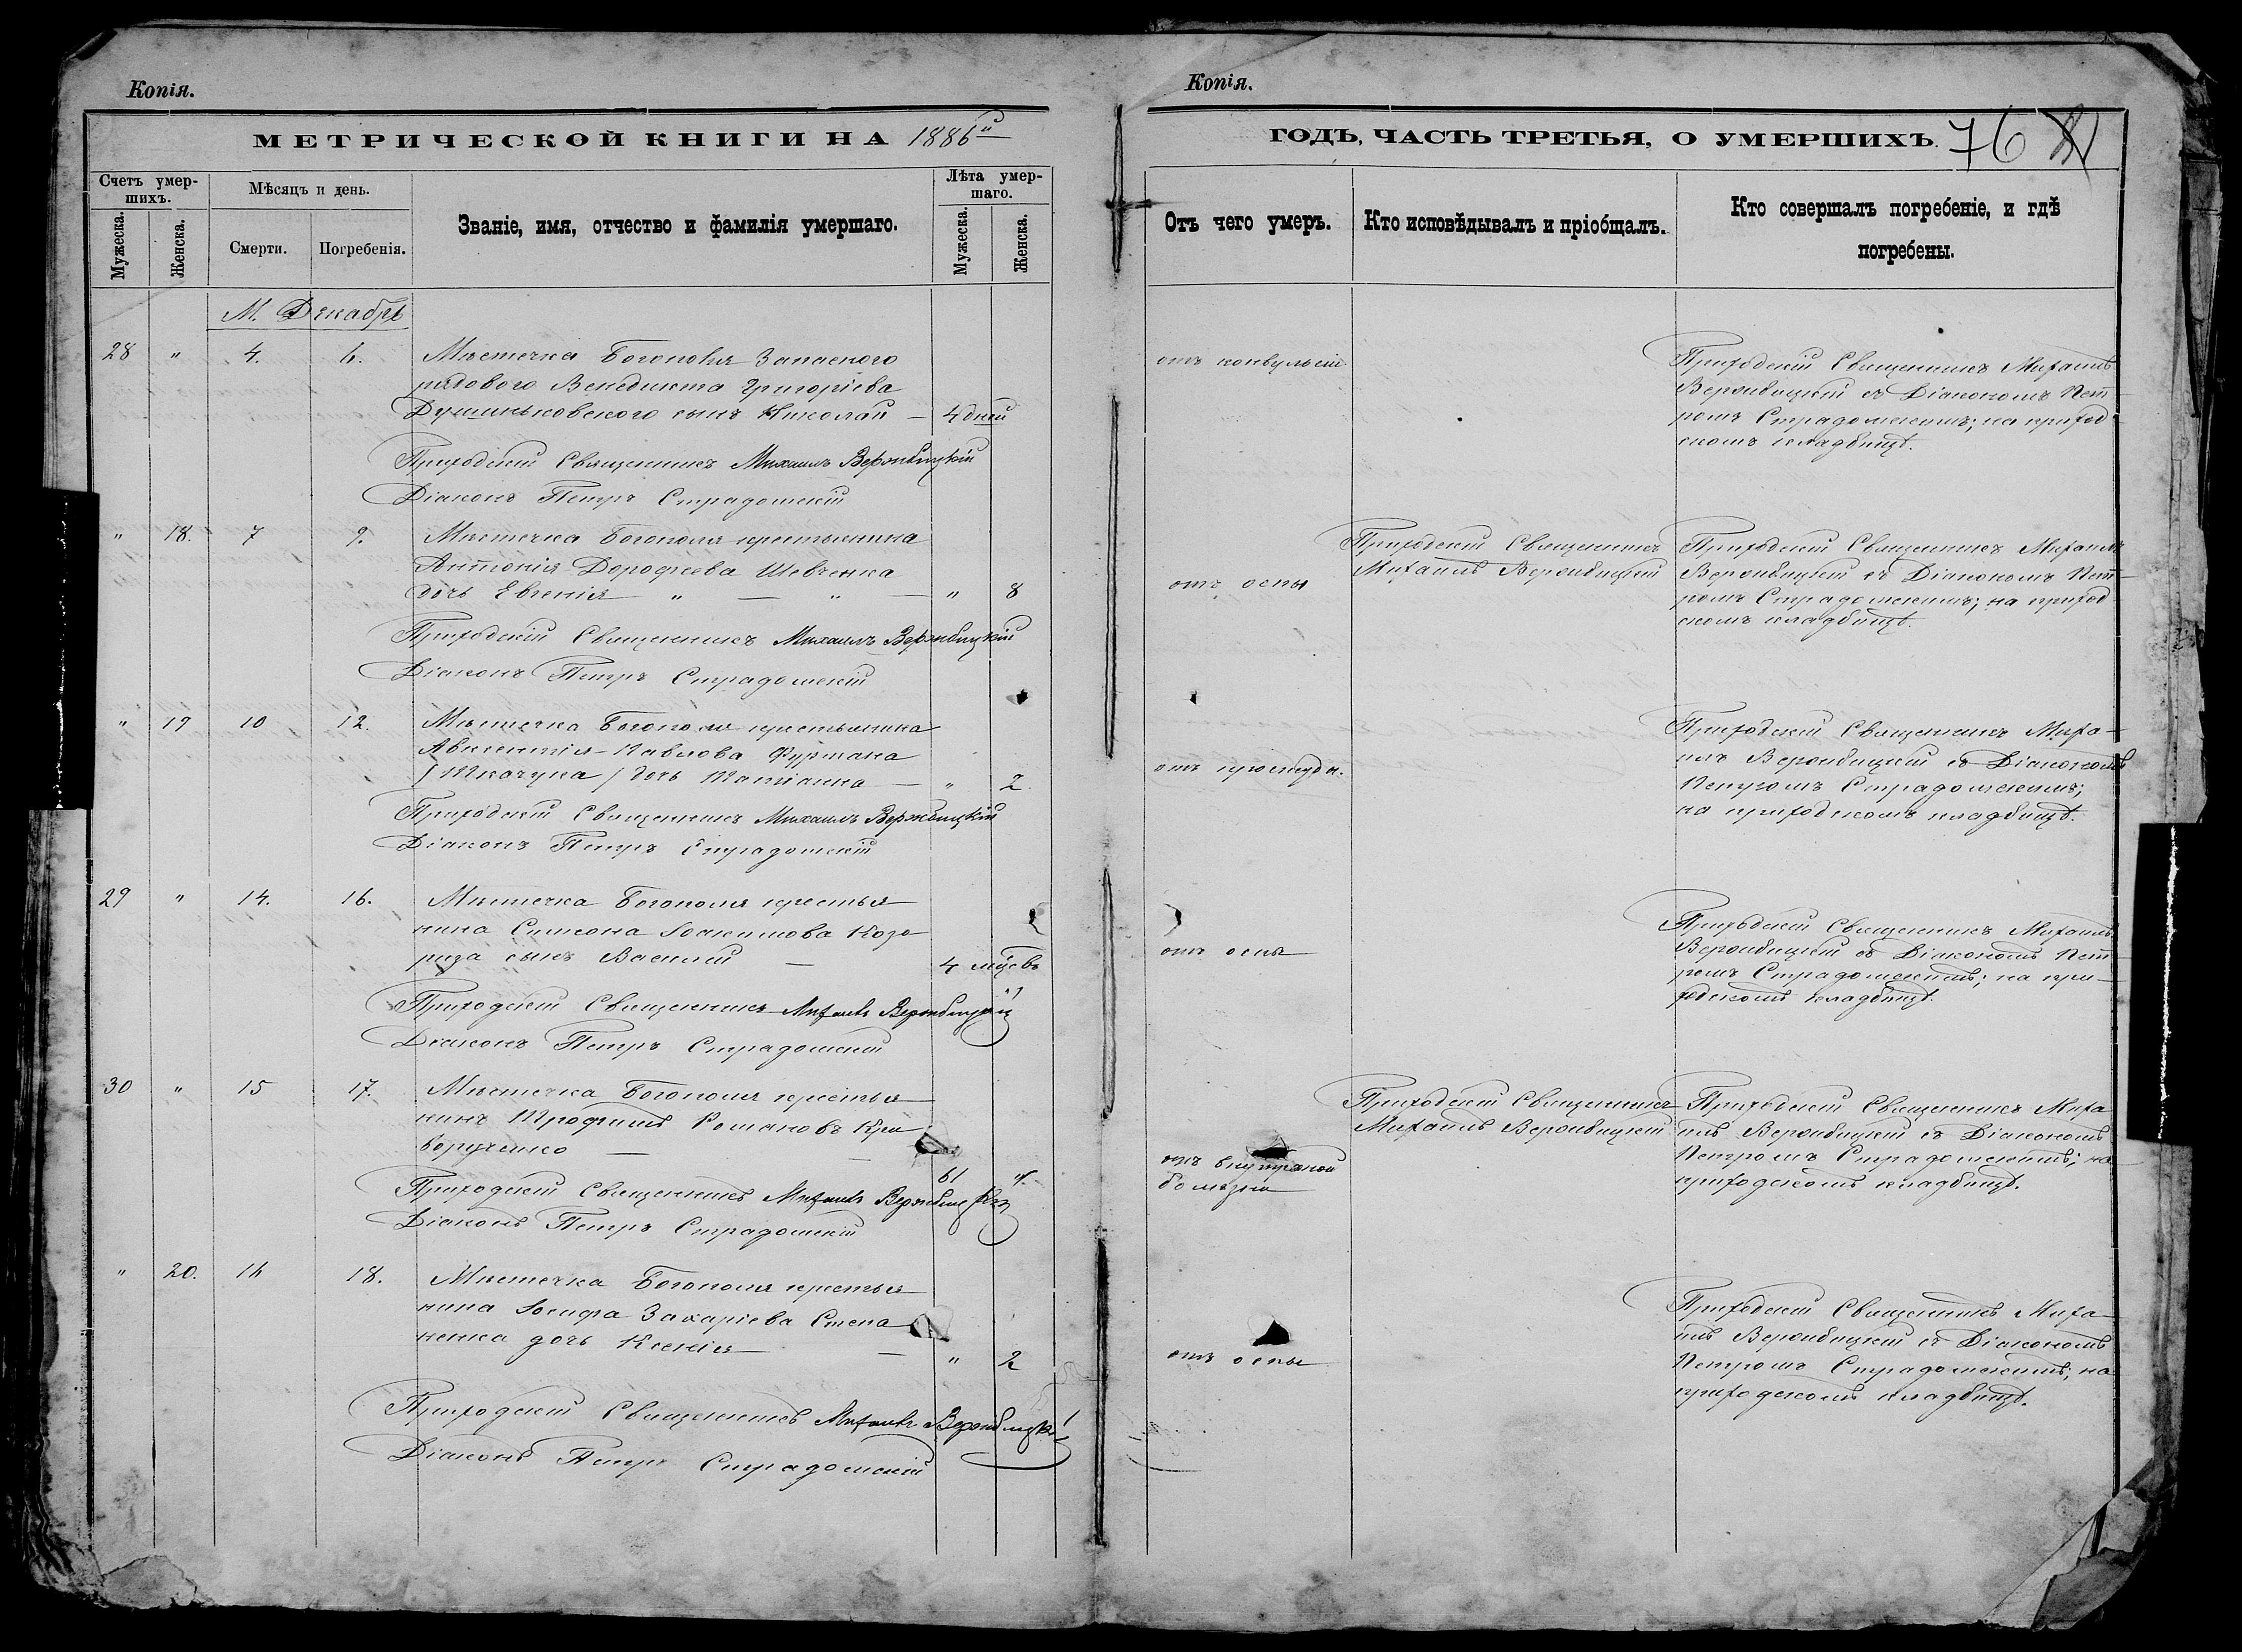 Копія.
МЕТРИЧЕСКОЙ КНИГИ НА 1886й
Счетъ умершихъ.
Мѣсяцъ и день.
Званіе, имя, отчество и фамилія умершаго.
Лѣта умершаго.
Мужеска.
Женска.
Смерти.
Погребенія.
Мужеска.
Женска.
М. Декабрь
28 " 4. 6. Мѣстечка Богополя Запаснаго
рядового Венедикта Григоріева
Душиньковского сынъ Николай — 4 дней
Приходскій Священникъ Михаилъ Вержбицкій
Діаконъ Петръ Страдомскій
" 18. 7 9. Мѣстечка Богополя крестьянина
Антонія Дорофеева Шевченка
дочь Евгенія " — " — " 8
Приходскій Священникъ Михаилъ Вержбицкій
Діаконъ Петръ Страдомскій
" 19 10 12. Мѣстечка Богополя крестьянина
Авксентія Павлова Фурмана
/Ткачука/ дочь Татіанна — " 2.
Приходскій Священникъ Михаилъ Вержбицкій
Діаконъ Петръ Страдомскій
29 " 14. 16. Мѣстечка Богополя крестья
нина Симеона Іоакимова Козо
риза сынъ Василій — 4 мѣс
Приходскій Священникъ Михаилъ Вержбицкій
Діаконъ Петръ Страдомскій
30 " 15 17. Мѣстечка Богополя крестья
нинъ Трофимъ Романовъ Кри
ворученко — — 61 ".
Приходскій Священникъ Михаилъ Вержбицкій
Діаконъ Петръ Страдомскій
" 20. 16 18. Мѣстечка Богополя крестья
нина Іосифа Захаріева Степа
ненка дочь Ксенія — " 2
Приходскій Священникъ Михаилъ Вержбицкій
Діаконъ Петръ Страдомскій
Копія.
ГОДЪ, ЧАСТЬ ТРЕТЬЯ, О УМЕРШИХЪ. 76
Отъ чего умеръ.
Кто исповѣдывалъ и пріобщалъ.
Кто совершалъ погребеніе, и гдѣ
погребены.
отъ конвульсіи
Приходскій Священникъ Михаилъ
Вержбицкій съ Діакономъ Пет
ромъ Страдомскимъ; на приход
скомъ кладбищѣ.
отъ оспы
Приходскій Священникъ
Михаилъ Вержбицкій
Приходскій Священникъ Михаилъ
Вержбицкій съ Діакономъ Пет
ромъ Страдомскимъ; на приход
скомъ кладбищѣ.
отъ простуды.
Приходскій Священникъ Миха—
илъ Вержбицкій съ Діакономъ
Петромъ Страдомскимъ;
на приходскомъ кладбищѣ.
отъ оспы
Приходскій Священникъ Михаилъ
Вержбицкій съ Діакономъ Пет
ромъ Страдомскимъ; на при—
ходскомъ кладбищѣ.
отъ внутреной
болѣзни
Приходскій Священникъ
Михаилъ Вержбицкій
Приходскій Священникъ Миха
илъ Вержбицкій съ Діакономъ
Петромъ Страдомскимъ; на
приходскомъ кладбищѣ.
отъ оспы
Приходскій Священникъ Миха—
илъ Вержбицкій съ Діакономъ
Петромъ Страдомскимъ; на
приходскомъ кладбищѣ.